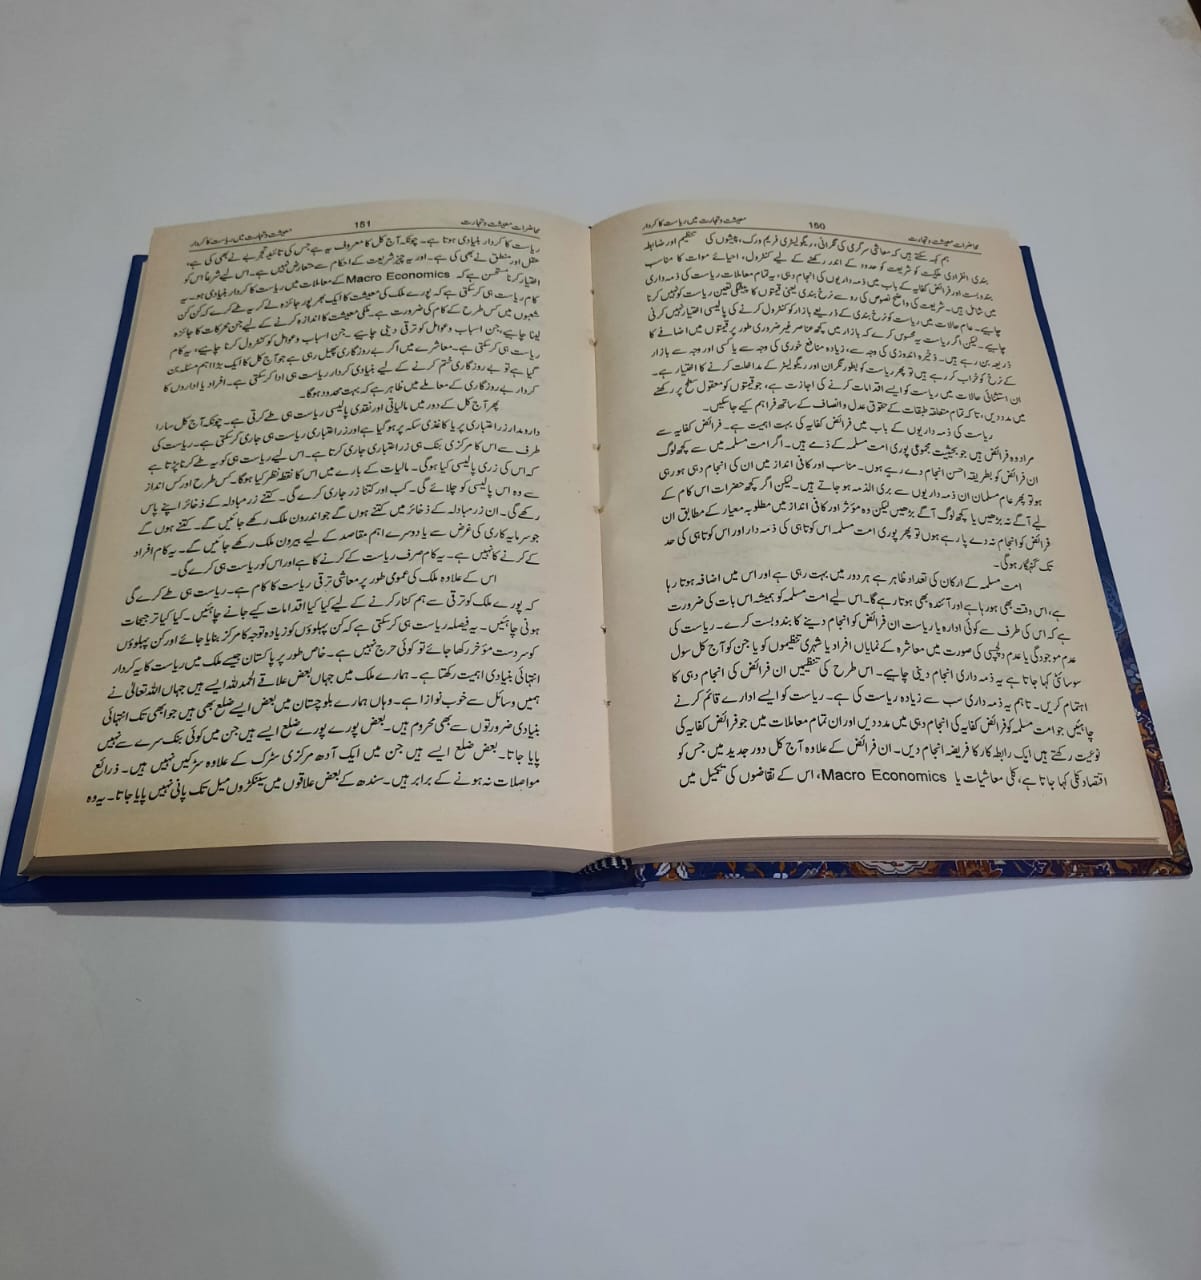 محاضرات معیشت و تجارت 160 معیشت و تجارت میں ریاست کا کردار
ہم کہہ سکتے ہیں کہ معاشی سرگرمی کی نگرانی، ریگولیٹری فریم ورک، پیشوں کی تنظیم اور ضابطہ
بندی انفرادی ملکیت کو شریعت کو حدود کے اندر رکھنے کے لیے کنٹرول، احیائے موات کا مناسب
بندوبست اور فرائض کفایہ کے باب میں ذمہ داریوں کی انجام دہی، یہ تمام معاملات ریاست کی ذمہ داری
میں شامل ہیں۔ شریعت کی واضح نصوص کی رو سے نرخ بندی یعنی قیتوں کا پیشگی تعین ریاست کو نہیں کرنا
چاہیے۔ عام حالات میں ریاست کو نرخ بندی کے ذریعے بازار کو کنٹرول کرنے کی پالیسی اختیار نہیں کرنی
چاہیے۔ لیکن اگر ریاست یہ محسوس کرے کہ بازار میں کچھ عناصر غیر ضروری طور پر قیمتوں میں اضافے کا
ذریعہ بن رہے ہیں۔ ذخیرہ اندوزی کی وجہ سے، زیادہ منافع خوری کی وجہ سے یا کسی اور وجہ سے بازار
کے نرخ کو خراب کر رہے ہیں تو پھر ریاست کو بطور نگران اور ریگولیٹر کے مداخلت کرنے کا اختیار ہے۔
ان استثنائی حالات میں ریاست کو ایسے اقدامات کرنے کی اجازت ہے، جو قیمتوں کو معقول سطح پر رکھنے
میں مدد دیں، تاکہ تمام متعلقہ طبقات کے حقوق عدل و انصاف کے ساتھ فراہم کیے جاسکیں۔
ریاست کی ذمہ داریوں کے باب میں فرائض کفایہ کی بہت اہمیت ہے۔ فرائض کفایہ سے
مراد وہ فرائض ہیں جو بحیثیت مجموعی پوری امت مسلمہ کے ذمے ہیں۔ اگر امت مسلمہ میں سے کچھ لوگ
ان فرائض کو بطریقہ احسن انجام دے رہے ہوں۔ مناسب اور کافی انداز میں ان کی انجام دہی ہو رہی
ہو تو پھر عام مسلمان ان ذمہ داریوں سے بری الذمہ ہو جاتے ہیں۔ لیکن اگر کچھ حضرات اس کام کے
لیے آگے نہ بڑھیں یا کچھ لوگ آگے بڑھیں لیکن وہ مؤثر اور کافی انداز میں مطلوبہ معیار کے مطابق ان
فرائض کو انجام نہ دے پا رہے ہوں تو پھر پوری امت مسلمہ اس کوتاہی کی ذمہ دار اور اس کوتاہی کی حد
تک گنہگار ہوگی۔
امت مسلمہ کے ارکان کی تعداد ظاہر ہے ہر دور میں بہت رہی ہے اور اس میں اضافہ ہوتا رہا
ہے، اس وقت بھی ہو رہا ہے اور آئندہ بھی ہوتا رہے گا۔ اس لیے امت مسلمہ کو ہمیشہ اس بات کی ضرورت
ہے کہ اس کی طرف سے کوئی ادارہ یا ریاست ان فرائض کو انجام دینے کا بندوبست کرے۔ ریاست کی
عدم موجودگی یا عدم دلچسپی کی صورت میں معاشرہ کے نمایاں افراد یا شہری تنظیموں کو یا جن کو آج کل سول
سوسائٹی کہا جاتا ہے یہ ذمہ داری انجام دینی چاہیے۔ اس طرح کی تنظیمیں ان فرائض کی انجام دہی کا
اہتمام کریں۔ تاہم یہ ذمہ داری سب سے زیادہ ریاست کی ہے۔ ریاست کو ایسے ادارے قائم کرنے
چاہیئں جو امت مسلمہ کو فرائض کفایہ کی انجام دہی میں مدد دیں اور ان تمام معاملات میں جو فرائض کفایہ کی
نوعیت رکھتے ہیں ایک رابطہ کار کا فریضہ انجام دیں۔ ان فرائض کے علاوہ آج کل دور جدید میں جس کو
اقتصاد کلی کہا جاتا ہے، کلی معاشیات یا Macro Economics، اس کے تقاضوں کی تکمیل میں
محاضرات معیشت و تجارت 161 معیشت و تجارت میں ریاست کا کردار
ریاست کا کردار بنیادی ہوتا ہے۔ چونکہ آج کل کا معروف یہ ہے جس کی تائید تجربے نے بھی کی ہے،
عقل اور منطق نے بھی کی ہے۔ اور یہ چیز شریعت کے احکام سے متعارض نہیں ہے۔ اس لیے شرعاً اس کو
اختیار کرنا مستحسن ہے کہ Macro Economics کے معاملات میں ریاست کا کردار بنیادی ہو۔ یہ
کام ریاست ہی کر سکتی ہے کہ پورے ملک کی معیشت کا ایک بھرپور جائزہ لے کر یہ طے کرے کہ کن کن
شعبوں میں کس طرح کے کام کی ضرورت ہے۔ ملکی معیشت کا اندازہ کرنے کے لیے جن محرکات کا جائزہ
لینا چاہیے، جن اسباب و عوامل کو ترقی دینی چاہیے۔ جن اسباب و عوامل کو کنٹرول کرنا چاہیے، یہ کام
ریاست ہی کر سکتی ہے۔ معاشرے میں اگر بے روزگاری پھیل رہی ہے جو آج کل کا ایک بڑا اہم مسئلہ بن
گیا ہے تو بے روزگاری ختم کرنے کے لیے بنیادی کردار ریاست ہی ادا کر سکتی ہے۔ افراد یا اداروں کا
کردار بے روزگاری کے معاملے میں ظاہر ہے کہ بہت محدود ہوگا۔
پھر آج کل کے دور میں مالیاتی اور نقدی پالیسی ریاست ہی طے کرتی ہے۔ چونکہ آج کل سارا
دارومدار زر اعتباری پر یا کاغذی سکہ پر ہو گیا ہے اور زر اعتباری ریاست ہی جاری کر سکتی ہے۔ ریاست کی
طرف سے اس کا مرکزی بنک ہی زر اعتباری جاری کرتا ہے۔ اس لیے ریاست ہی کو یہ طے کرنا پڑتا ہے
کہ اس کی زری پالیسی کیا ہوگی۔ مالیات کے بارے میں اس کا نقطہ نظر کیا ہوگا۔ کس طرح اور کس انداز
سے وہ اس پالیسی کو چلائے گی۔ کب اور کتنا زر جاری کرے گی۔ کتنے زر مبادلہ کے ذخائر اپنے پاس
رکھے گی۔ ان زر مبادلہ کے ذخائر میں کتنے ہوں گے جو اندرون ملک رکھے جائیں گے۔ کتنے ہوں گے
جو سرمایہ کاری کی غرض سے یا دوسرے اہم مقاصد کے لیے بیرون ملک رکھے جائیں گے۔ یہ کام افراد
کے کرنے کا نہیں ہے۔ یہ کام صرف ریاست کے کرنے کا ہے اور اس کو ریاست ہی کرے گی۔
اس کے علاوہ ملک کی عمومی طور پر معاشی ترقی ریاست کا کام ہے۔ ریاست ہی طے کرے گی
کہ پورے ملک کو ترقی سے ہم کنار کرنے کے لیے کیا کیا اقدامات کیے جانے چاہئیں۔ کیا کیا ترجیحات
ہونی چاہئیں۔ یہ فیصلہ ریاست ہی کر سکتی ہے کہ کن پہلوؤں کو زیادہ توجہ کا مرکز بنایا جائے اور کن پہلوؤں
کو سردست مؤخر رکھا جائے تو کوئی حرج نہیں ہے۔ خاص طور پر پاکستان جیسے ملک میں ریاست کا یہ کردار
انتہائی بنیادی اہمیت رکھتا ہے۔ ہمارے ملک میں جہاں بعض علاقے الحمد للہ ایسے ہیں جہاں اللہ تعالیٰ نے
ہمیں وسائل سے خوب نوازا ہے۔ وہاں ہمارے بلوچستان میں بعض ایسے ضلع بھی ہیں جو ابھی تک انتہائی
بنیادی ضرورتوں سے بھی محروم ہیں۔ بعض پورے پورے ضلع ایسے ہیں جن میں کوئی بنک سرے سے نہیں
پایا جاتا۔ بعض ضلع ایسے ہیں جن میں ایک آدھ مرکزی سڑک کے علاوہ سڑکیں نہیں ہیں۔ ذرائع
مواصلات نہ ہونے کے برابر ہیں۔ سندھ کے بعض علاقوں میں سینکڑوں میل تک پانی نہیں پایا جاتا۔ یہ وہ